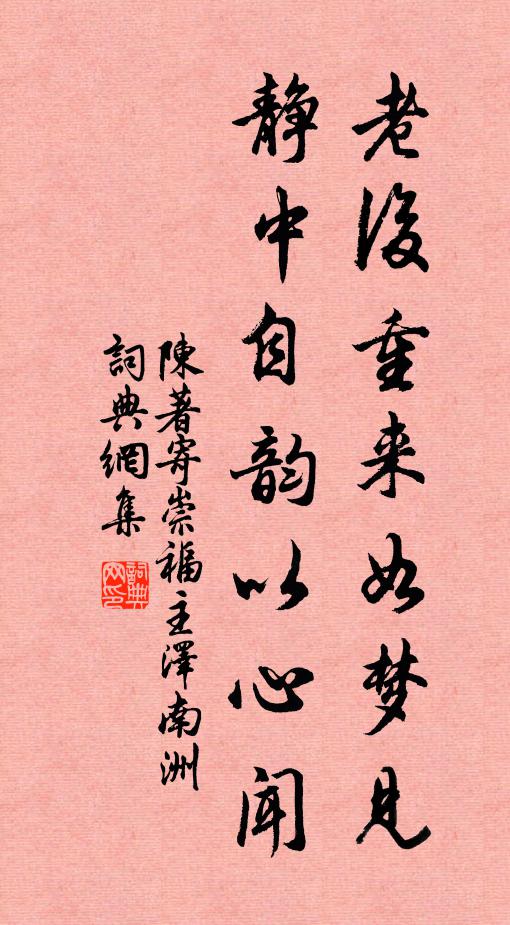 老後重来如梦見
静中自韵以心闻
陳著寄崇福主澤南洲
詞典網集
詞典网印